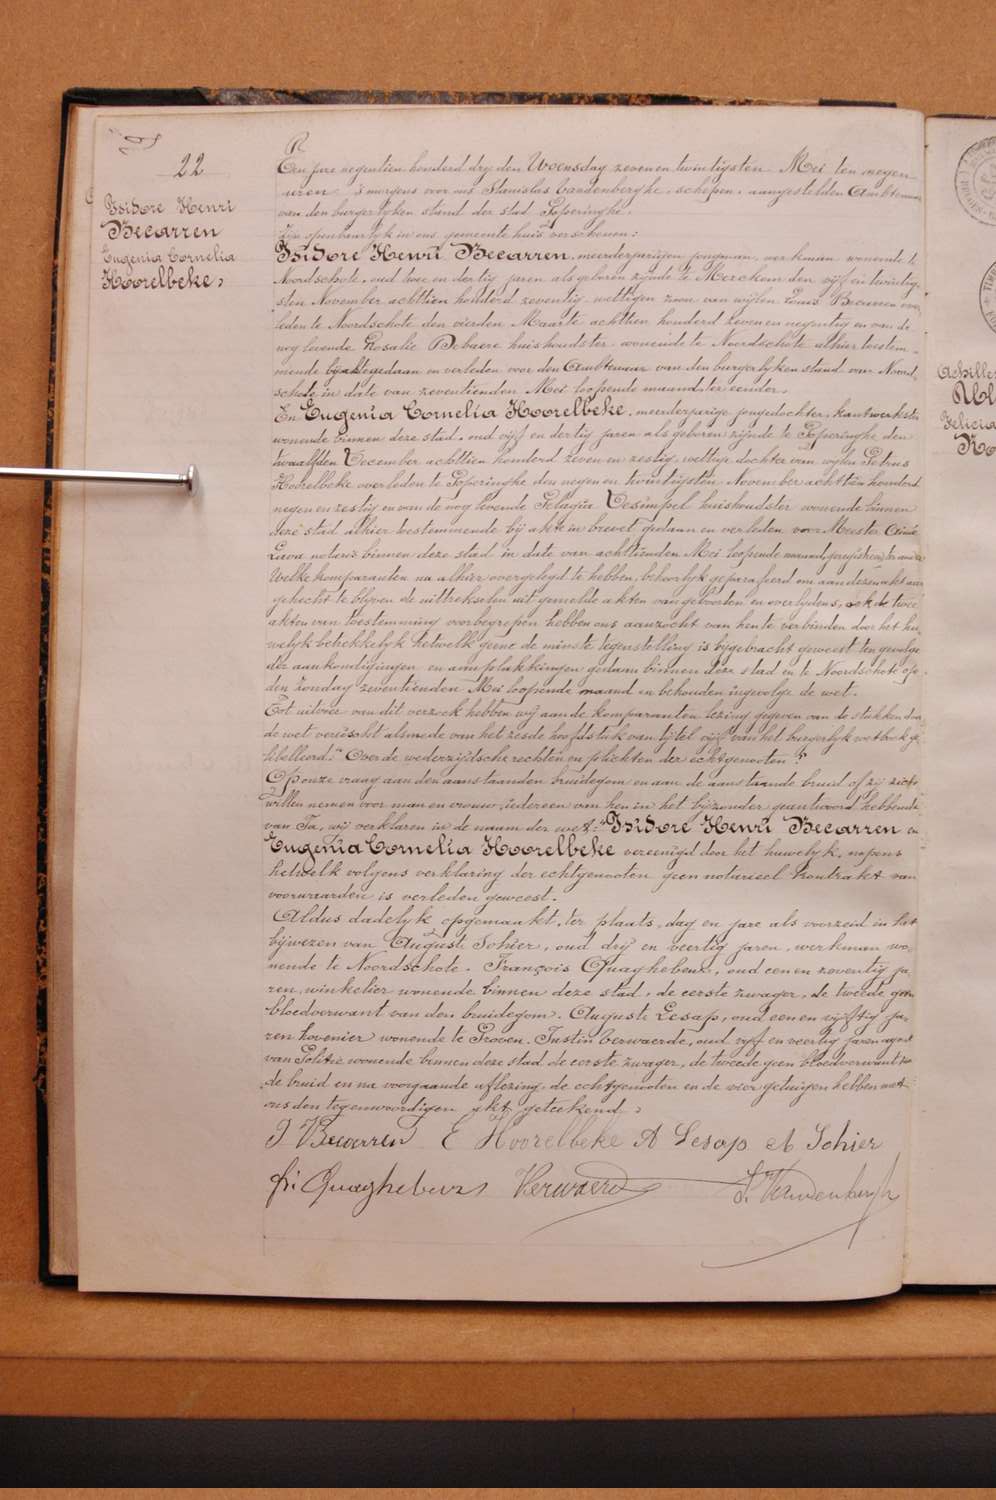 22
Isidore Henri
Becarren
Eugenia Cornelia
Hoorelbeke
Een jare negentien honderd dry den Woensdag zeven en twintigsten Mei ten negen
uren 's morgens voor ons Stanislas Vandenberghe, schepen, aangestelden Ambtenaar
van den burgerlyken stand der stad Poperinghe.
Zyn openbaarlyk in ons gemeente huis verschenen:
Isidore Henri Becarren, meerderjarigen jongman, werkman wonende te
Noordschote, oud twee en dertig jaren als geboren zijnde te Merckem den vijf en twintig-
sten November achttien honderd zeventig, wettigen zoon van wijlen Louis Becarren over-
leden te Noordschote den vierden Maarte achttien honderd zeven en negentig en van de
nog levende Rosalie Debaere huishoudster wonende te Noordschote alhier toestem-
mende bij akte gedaan en verleden voor den Ambtenaar van den burgerlyken stand van Noord-
schote in date van zeventienden Mei loopende maand ter eender.
En Eugenia Cornelia Hoorelbeke, meerderjarige jongedochter, kantwerkster
wonende binnen deze stad, oud vijf en dertig jaren als geboren zijnde te Poperinghe den
twaalfden December achttien honderd zeven en zestig, wettige dochter van wylen Petrus
Hoorelbeke overleden te Poperinghe den negen en twintigsten November achttien honderd
negen en zestig en van de nog levende Pelagia Desimpel huishoudster wonende binnen
deze stad alhier toestemmende bij akte in brevet gedaan en verleden voor Meester Aimé
Lava notaris binnen deze stad in date van achttienden Mei loopende maand, ter andere
Welke komparanten na alhier overgelegd te hebben, behoorlyk geparafeerd om aan dezen akt aan
gehecht te blyven de uittreksels uit gemelde akten van geboorten en overlydens, ook de twee
akten van toestemming voorbegrepen hebben ons aanzocht van hen te verbinden door het hu-
welyk betrekkelyk hetwelk geene de minste tegenstelling is bygebracht geweest ten gevolge
der aankondigingen en aanplakkingen gedaan binnen deze stad en te Noordschote op
den zondag zeventienden Mei loopende maand en behouden ingevolge de wet.
Tot uitvoer van dit verzoek hebben wij aan de komparanten lezing gegeven van de stukken door
de wet vereischt alsmede van het zesde hoofdstuk van tytel vyf van het burgerlyk wetboek ge-
libelleerd: "Over de wederzijdsche rechten en plichten der echtgenooten."
Op onze vraag aan den aanstaanden bruidegom en aan de aanstaande bruid of zij zich
willen nemen voor man en vrouw, iedereen van hen in het byzonder geantwoord hebbende
van Ja, wij verklaren in de naam der wet: "Isidore Henri Becarren en
Eugenia Cornelia Hoorelbeke vereenigd door het huwelyk, nopens
hetwelk volgens verklaring der echtgenooten geen notarieel kontrakt van
voorwaarden is verleden geweest.
Aldus dadelyk opgemaakt, ter plaats, dag en jare als voorzeid in het
bijwezen van Auguste Sohier, oud drij en veertig jaren, werkman wo-
nende te Noordschote. François Quaghebeur, oud een en zeventig ja-
ren, winkelier wonende binnen deze stad, de eerste zwager, de tweede geen
bloedverwant van den bruidegom. Auguste Lesap, oud een en vijftig ja-
ren hovenier wonende te Proven. Justin Verwaerde, oud vijf en veertig jaren agent
van Politie wonende binnen deze stad de eerste zwager, de tweede geen bloedverwant van
de bruid en na voorgaande aflezing, de echtgenooten en de vier getuigen hebben met
ons den tegenwoordigen akt geteekend.
I Becarren E Hoorelbeke A Lesap A Sohier
fri Quaghebeur Verwaerde S. Vandenberghe
Achille
Felicia